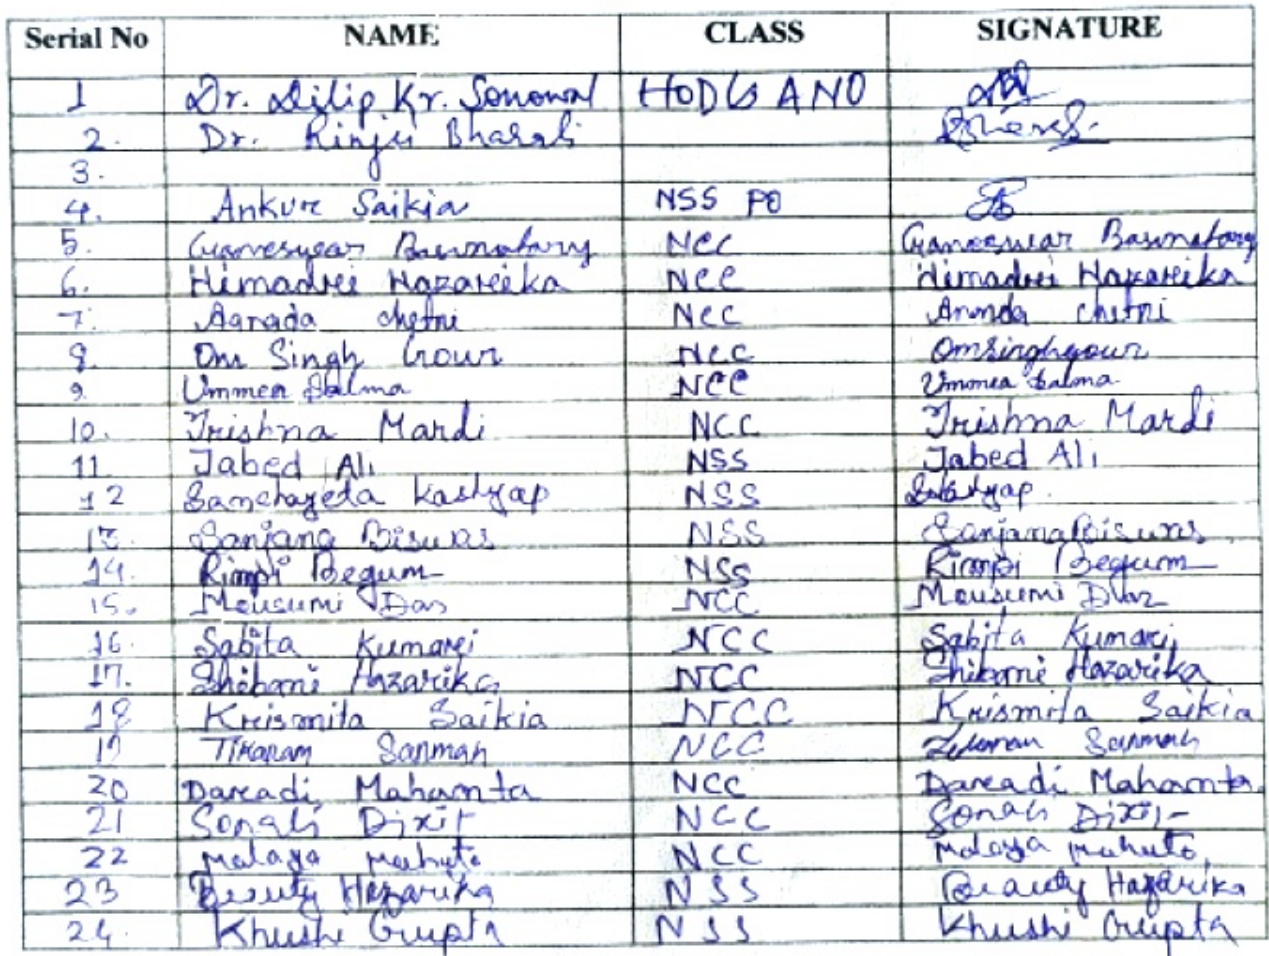 Serial No NAME CLASS SIGNATURE
1 Dr. Dilip Kr. Sonowal HOD & ANO
2. Dr. Rinju Bharali
3.
4. Ankur Saikia NSS PO
5. Ganeswar Basumatary NCC Ganeswar Basumatary
6. Himadrei Hazareika NCC Himadrei Hazareika
7. chetri NCC chetri
8. Om Singh Gour NCC Omsinghgour
9. Ummea Salma NCC Ummea Salma
10. Trishna Mardi NCC Trishna Mardi
11. Jabed Ali NSS Jabed Ali
12 Sanchayeta Kashyap NSS
13. Sanjana Biswas NSS Sanjana Biswas
14. Rimpi Begum NSS Rimpi Begum
15. Mousumi Das NCC Mousumi Das
16. Sabita Kumarei NCC Sabita Kumari
17. Shibani Hazarika NCC Shibani Hazarika
18 Krismita Saikia NCC Krismita Saikia
19 Tikaram Sarmah NCC Sarmah
20 Dareadi Mahamta NCC Dareadi Mahamta
21 Sonali Dixit NCC Sonali Dixit
22 Malaya Mahato NCC Malaya Mahato
23 Beauty Hazarika NSS Beauty Hazarika
24. Khushi Gupta NSS Khushi Gupta